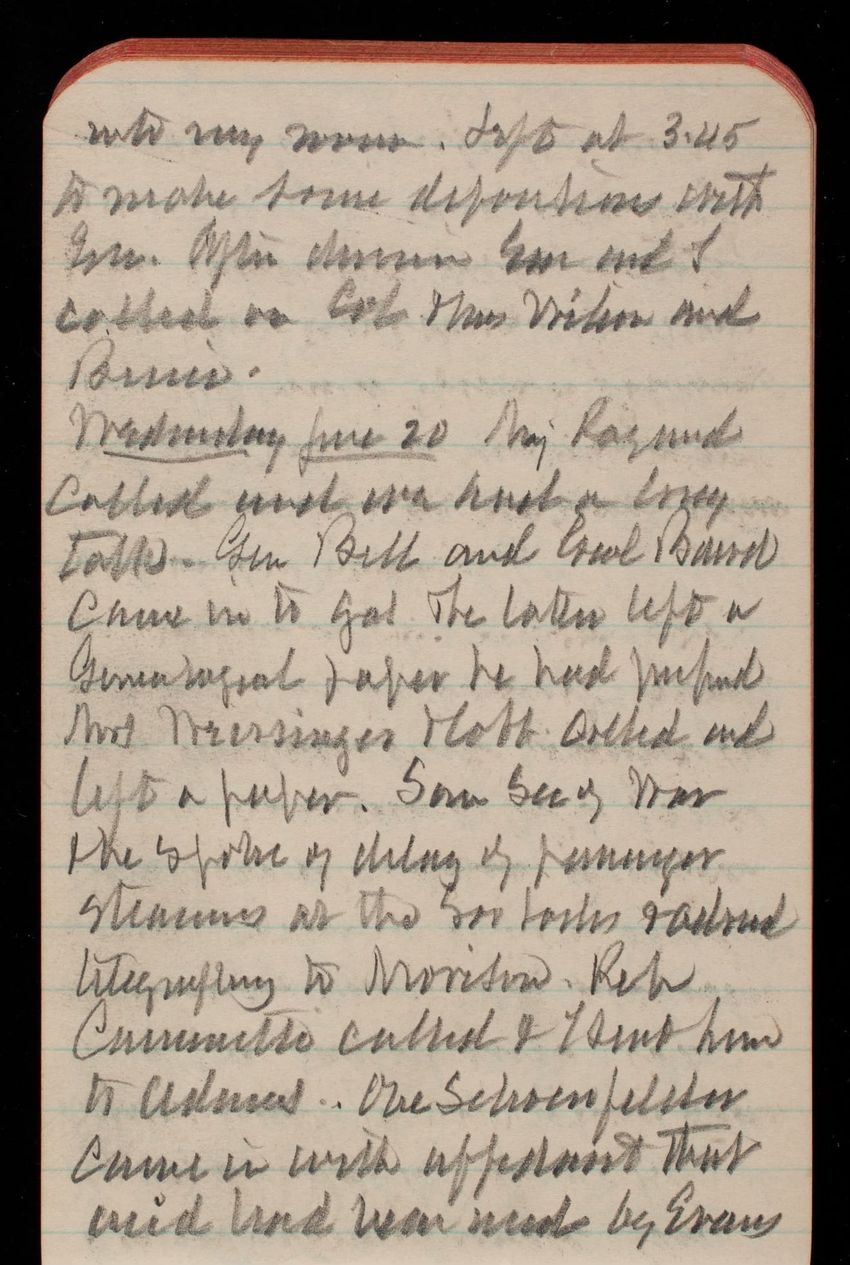 into my room. Left at 3.45
to make some depositions with
Gen. After dinner Gen and I
called on Col Thos Wilson and
Bessie.
Wednesday June 20 Maj Ragund
called and we had a long
talk. Gen Bell and Baird
came in to gos the later left a
Genealogical paper he had prepared
Mrs called and
left a paper. Saw Sec of War
the spoke of delay of passenger
steamers at the Soo locks
telegraphing to Morison. Rep
Caminetti called & I sent him
to Adams. Schoenfelder
came in with affidavit that
acid had been used by Evans